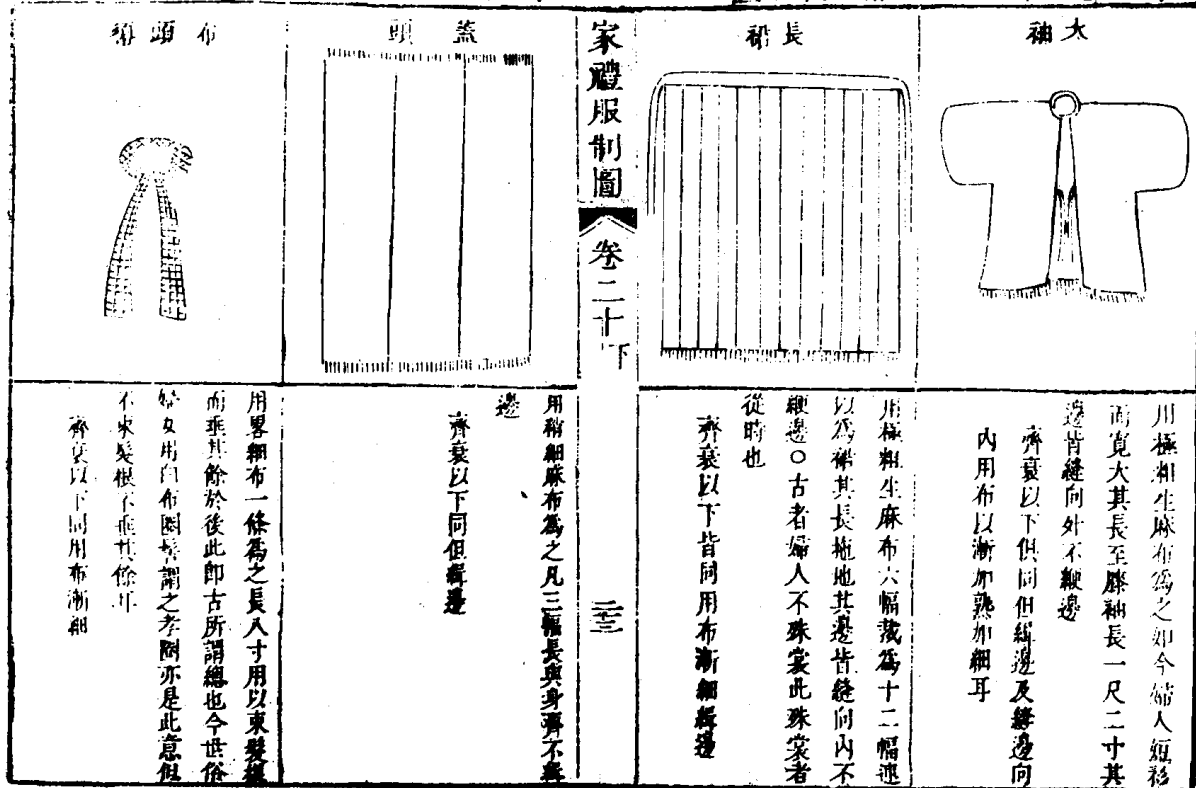 大袖
用極粗生麻布為之如今婦人短衫
而寬大其長至膝袖長一尺二寸其
邊皆縫向外不緶邊
齊衰以下俱同但緝邊及縫邊向
內用布以漸加熟加細耳
長裙
用極粗生麻布六幅裁為十二幅連
以為裙其長拖地其邊皆縫向內不
緶邊○古者婦人不殊裳此殊裳者
從時也
齊衰以下皆同用布漸細緝邊
家禮服制圖
卷二十下
二十三
蓋頭
用稍細麻布爲之凡三幅長與身齊不緝
邊
齊衰以下同但緝邊
布頭𢄼
用畧細布一條爲之長八寸用以束髮根
而垂其餘於後此即古所謂總也今世俗
婦女用白布圈髻謂之孝圈亦是此意但
不束髮根不垂其餘耳
齊衰以下同用布漸細